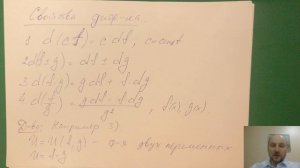 Свойства диф-ла.
1 d(cf) = c df, c=const
2 d(f±g) = df ± dg
3 d(f·g) = g df + f dg
4 d(f/g) = (g df - f dg)/g², f(x), g(x)
Д-во: Например 3)
U = U(f,g) - ф-я двух переменных
U = f·g